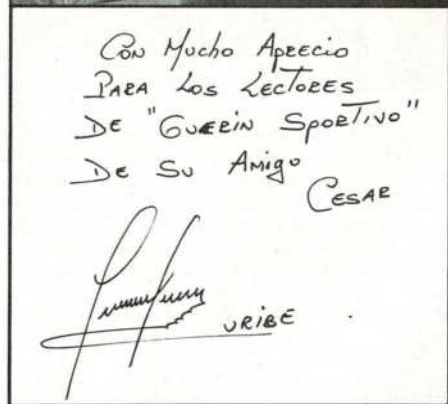 Con Mucho Aprecio
Para Los Lectores
De "Guerin Sportivo"
De Su Amigo
Cesar
Uribe